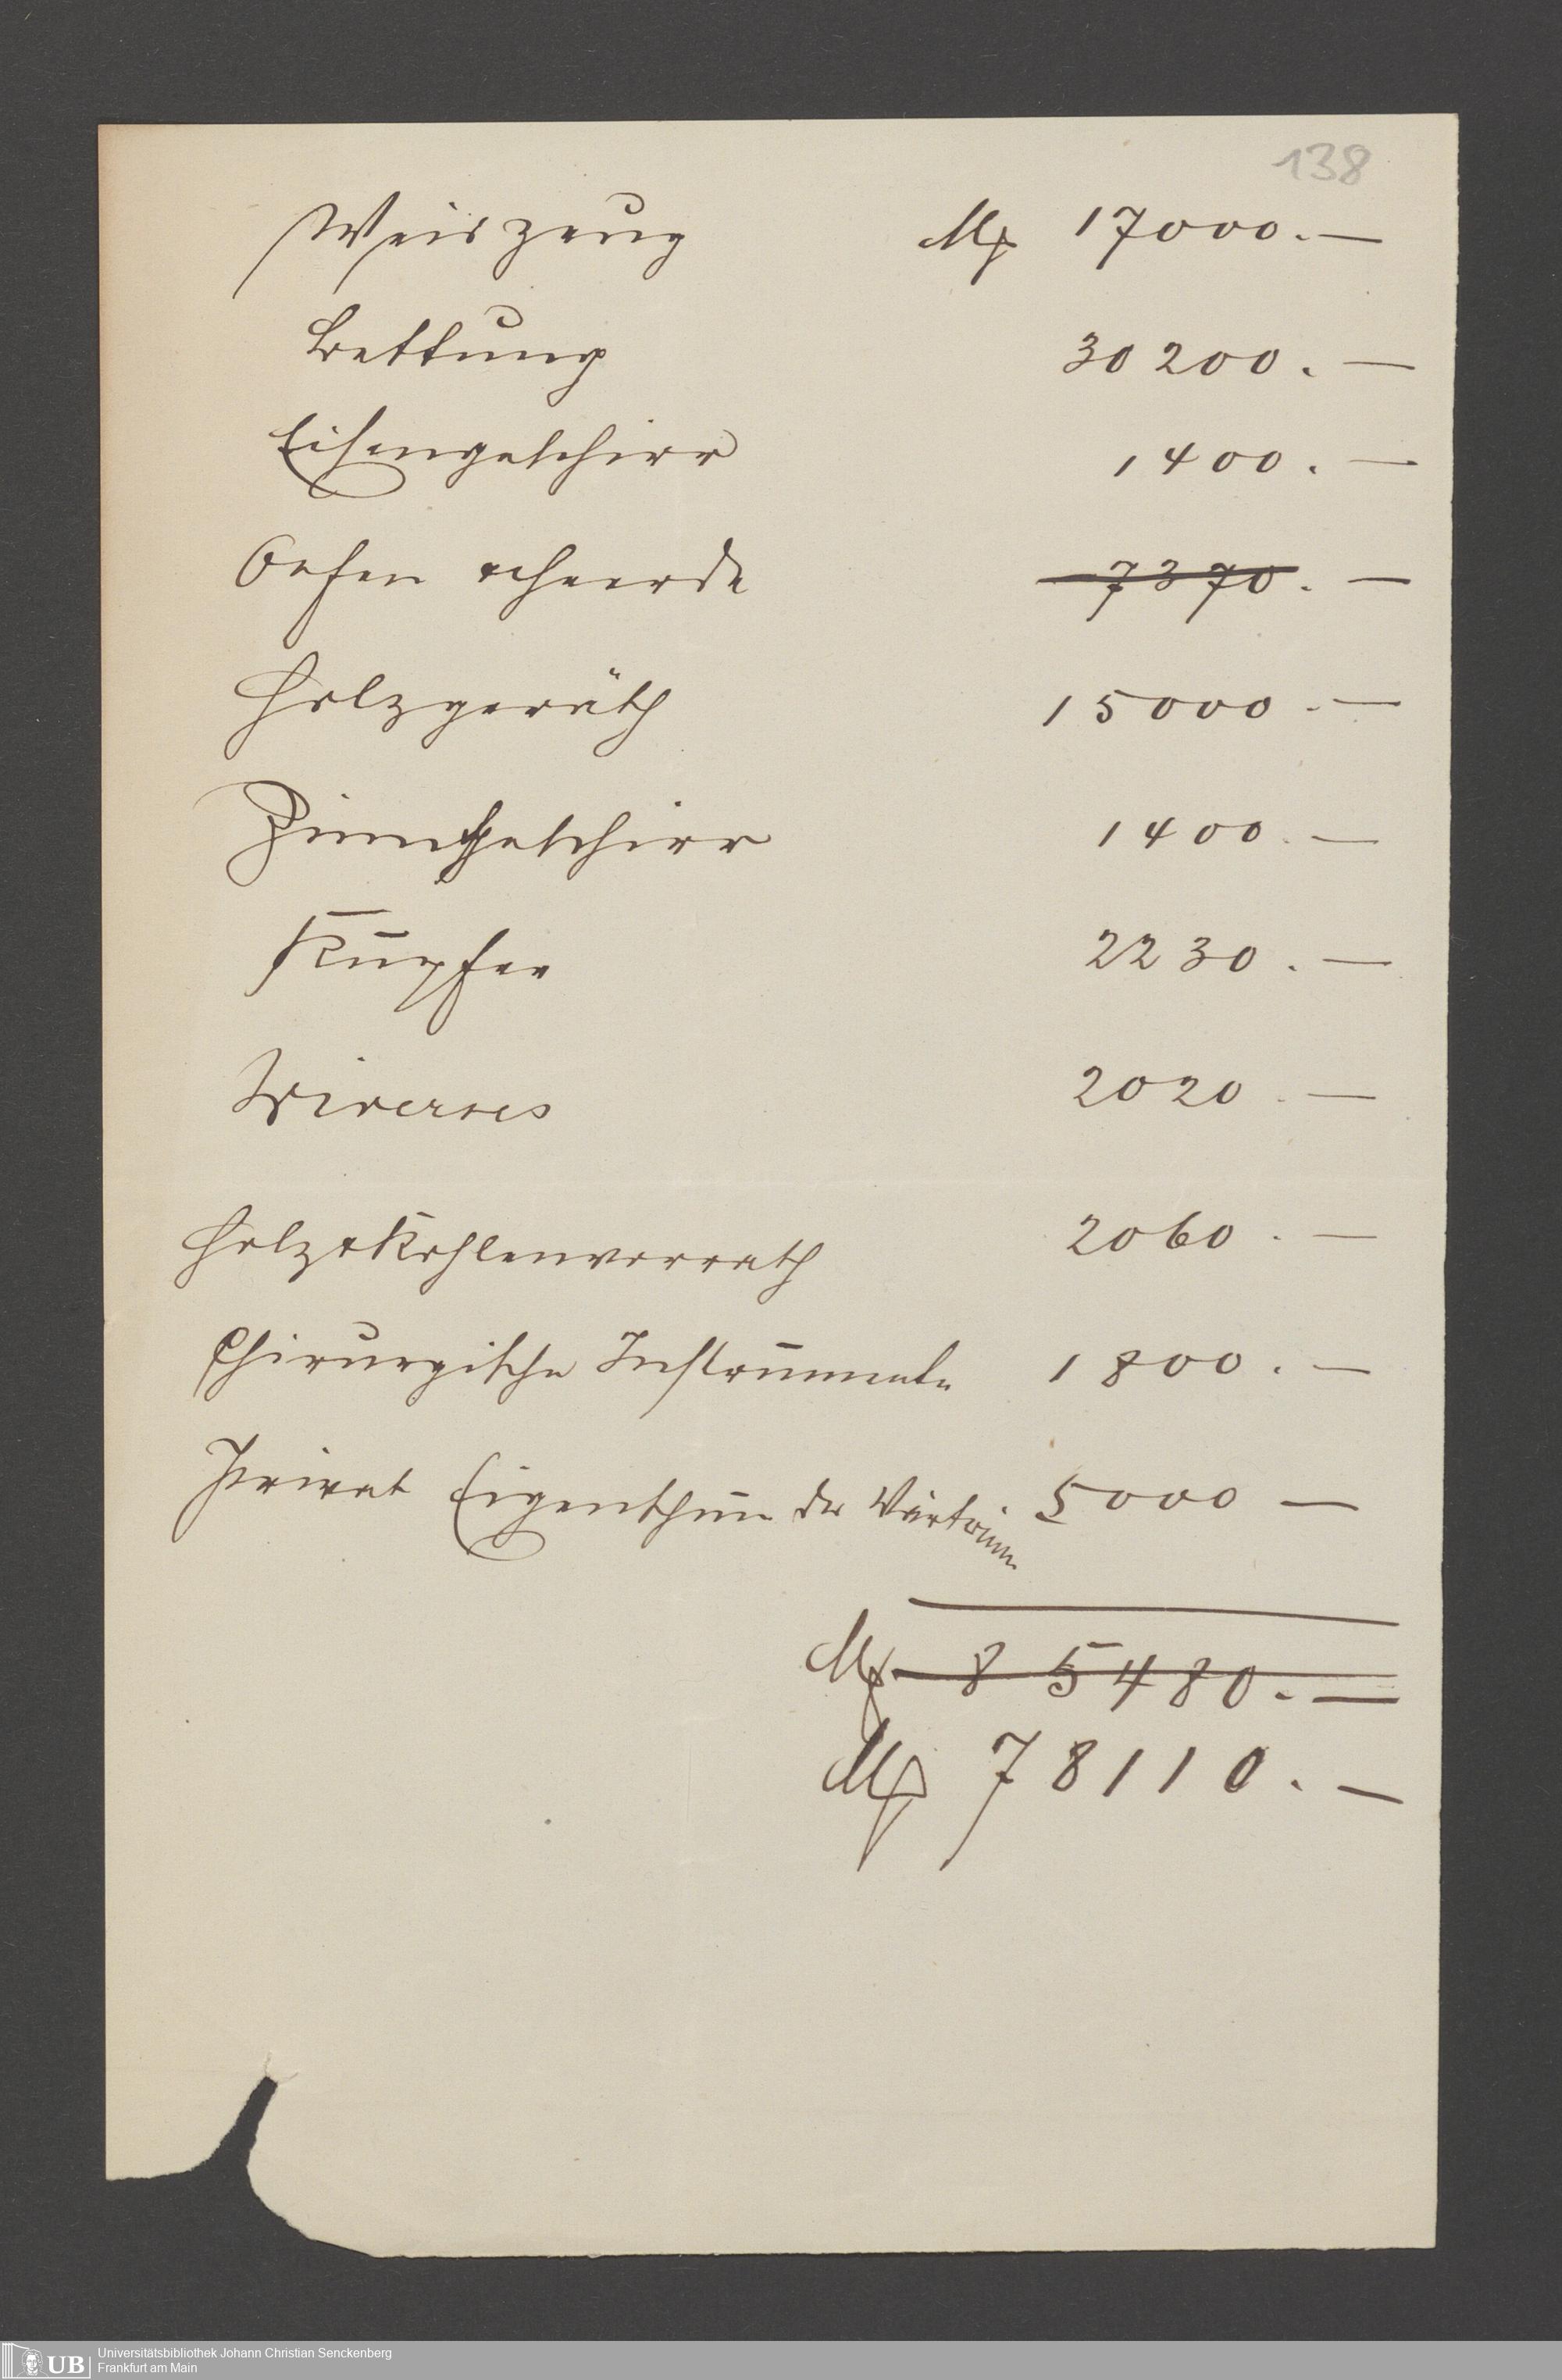 138
Weiszeug M 17000.—
Bettung 30200.—
Eisengeschirr 1400.—
Oefen & Heerde 7370.—
Holzgeräth 15000.—
Zinngeschirr 1400.—
Kupfer 2230.—
Diverses 2020.—
Holz & Kohlenvorrath 2060.—
Chirurgische Instrumente 1800.—
Privat Eigenthum der Wärterinn 5000 —
M 85480.—
M 78110.—
UB Universitätsbibliothek Johann Christian Senckenberg
Frankfurt am Main